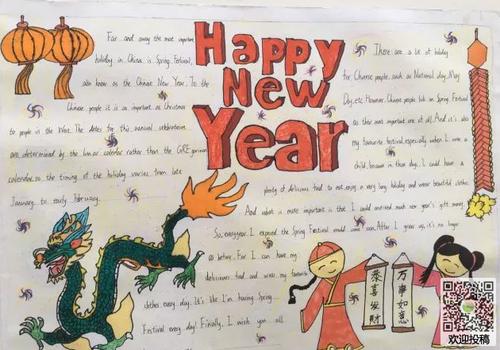 Happy
New
Year
Far and away the most important
holiday in China is Spring Festival,
also know as the Chinese New Year. To the
Chinese people it is as important as Christmas
to people in the West. The dates for this annual celebration
are determined by the lunar calendar rather than the GREgorian
calendar, so the timing of the holiday varies from late
January to early February.
There are a lot of holiday
for Chinese people, such as National day, May
Day, etc. However, Chinese people look on Spring Festival
as their most important one of all. And it's also
my favourite festival, especially when I were a
child. Because in those days, I could have a
plenty of delicious food to eat, enjoy a very long holiday and wear beautiful clothes.
And what is more important is that I could received much new year's gift money.
So, everyyear, I expected the Spring Festival would come soon. After I grew up, it's no longer
so better. For I can have my
delicious food and wear my favourite
clothes every day. It's like I'm having Spring
Festival every day. Finally, I wish you all
恭喜發財
万事如意
欢迎投稿